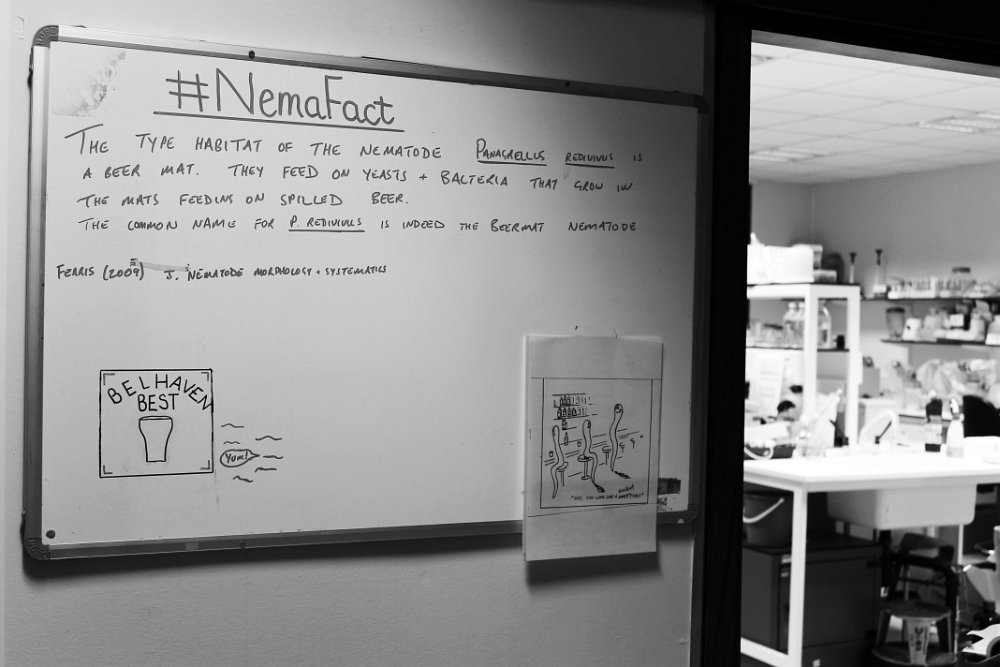 #NemaFact
THE TYPE HABITAT OF THE NEMATODE PANAGRELLUS REDIVIVUS IS
A BEER MAT. THEY FEED ON YEASTS + BACTERIA THAT GROW IN
THE MATS FEEDING ON SPILLED BEER.
THE COMMON NAME FOR P. REDIVIVUS IS INDEED THE BEERMAT NEMATODE
FERRIS (2009) J. NEMATODE MORPHOLOGY + SYSTEMATICS
BELHAVEN
BEST
Yum!
YOU LOOK LIKE A